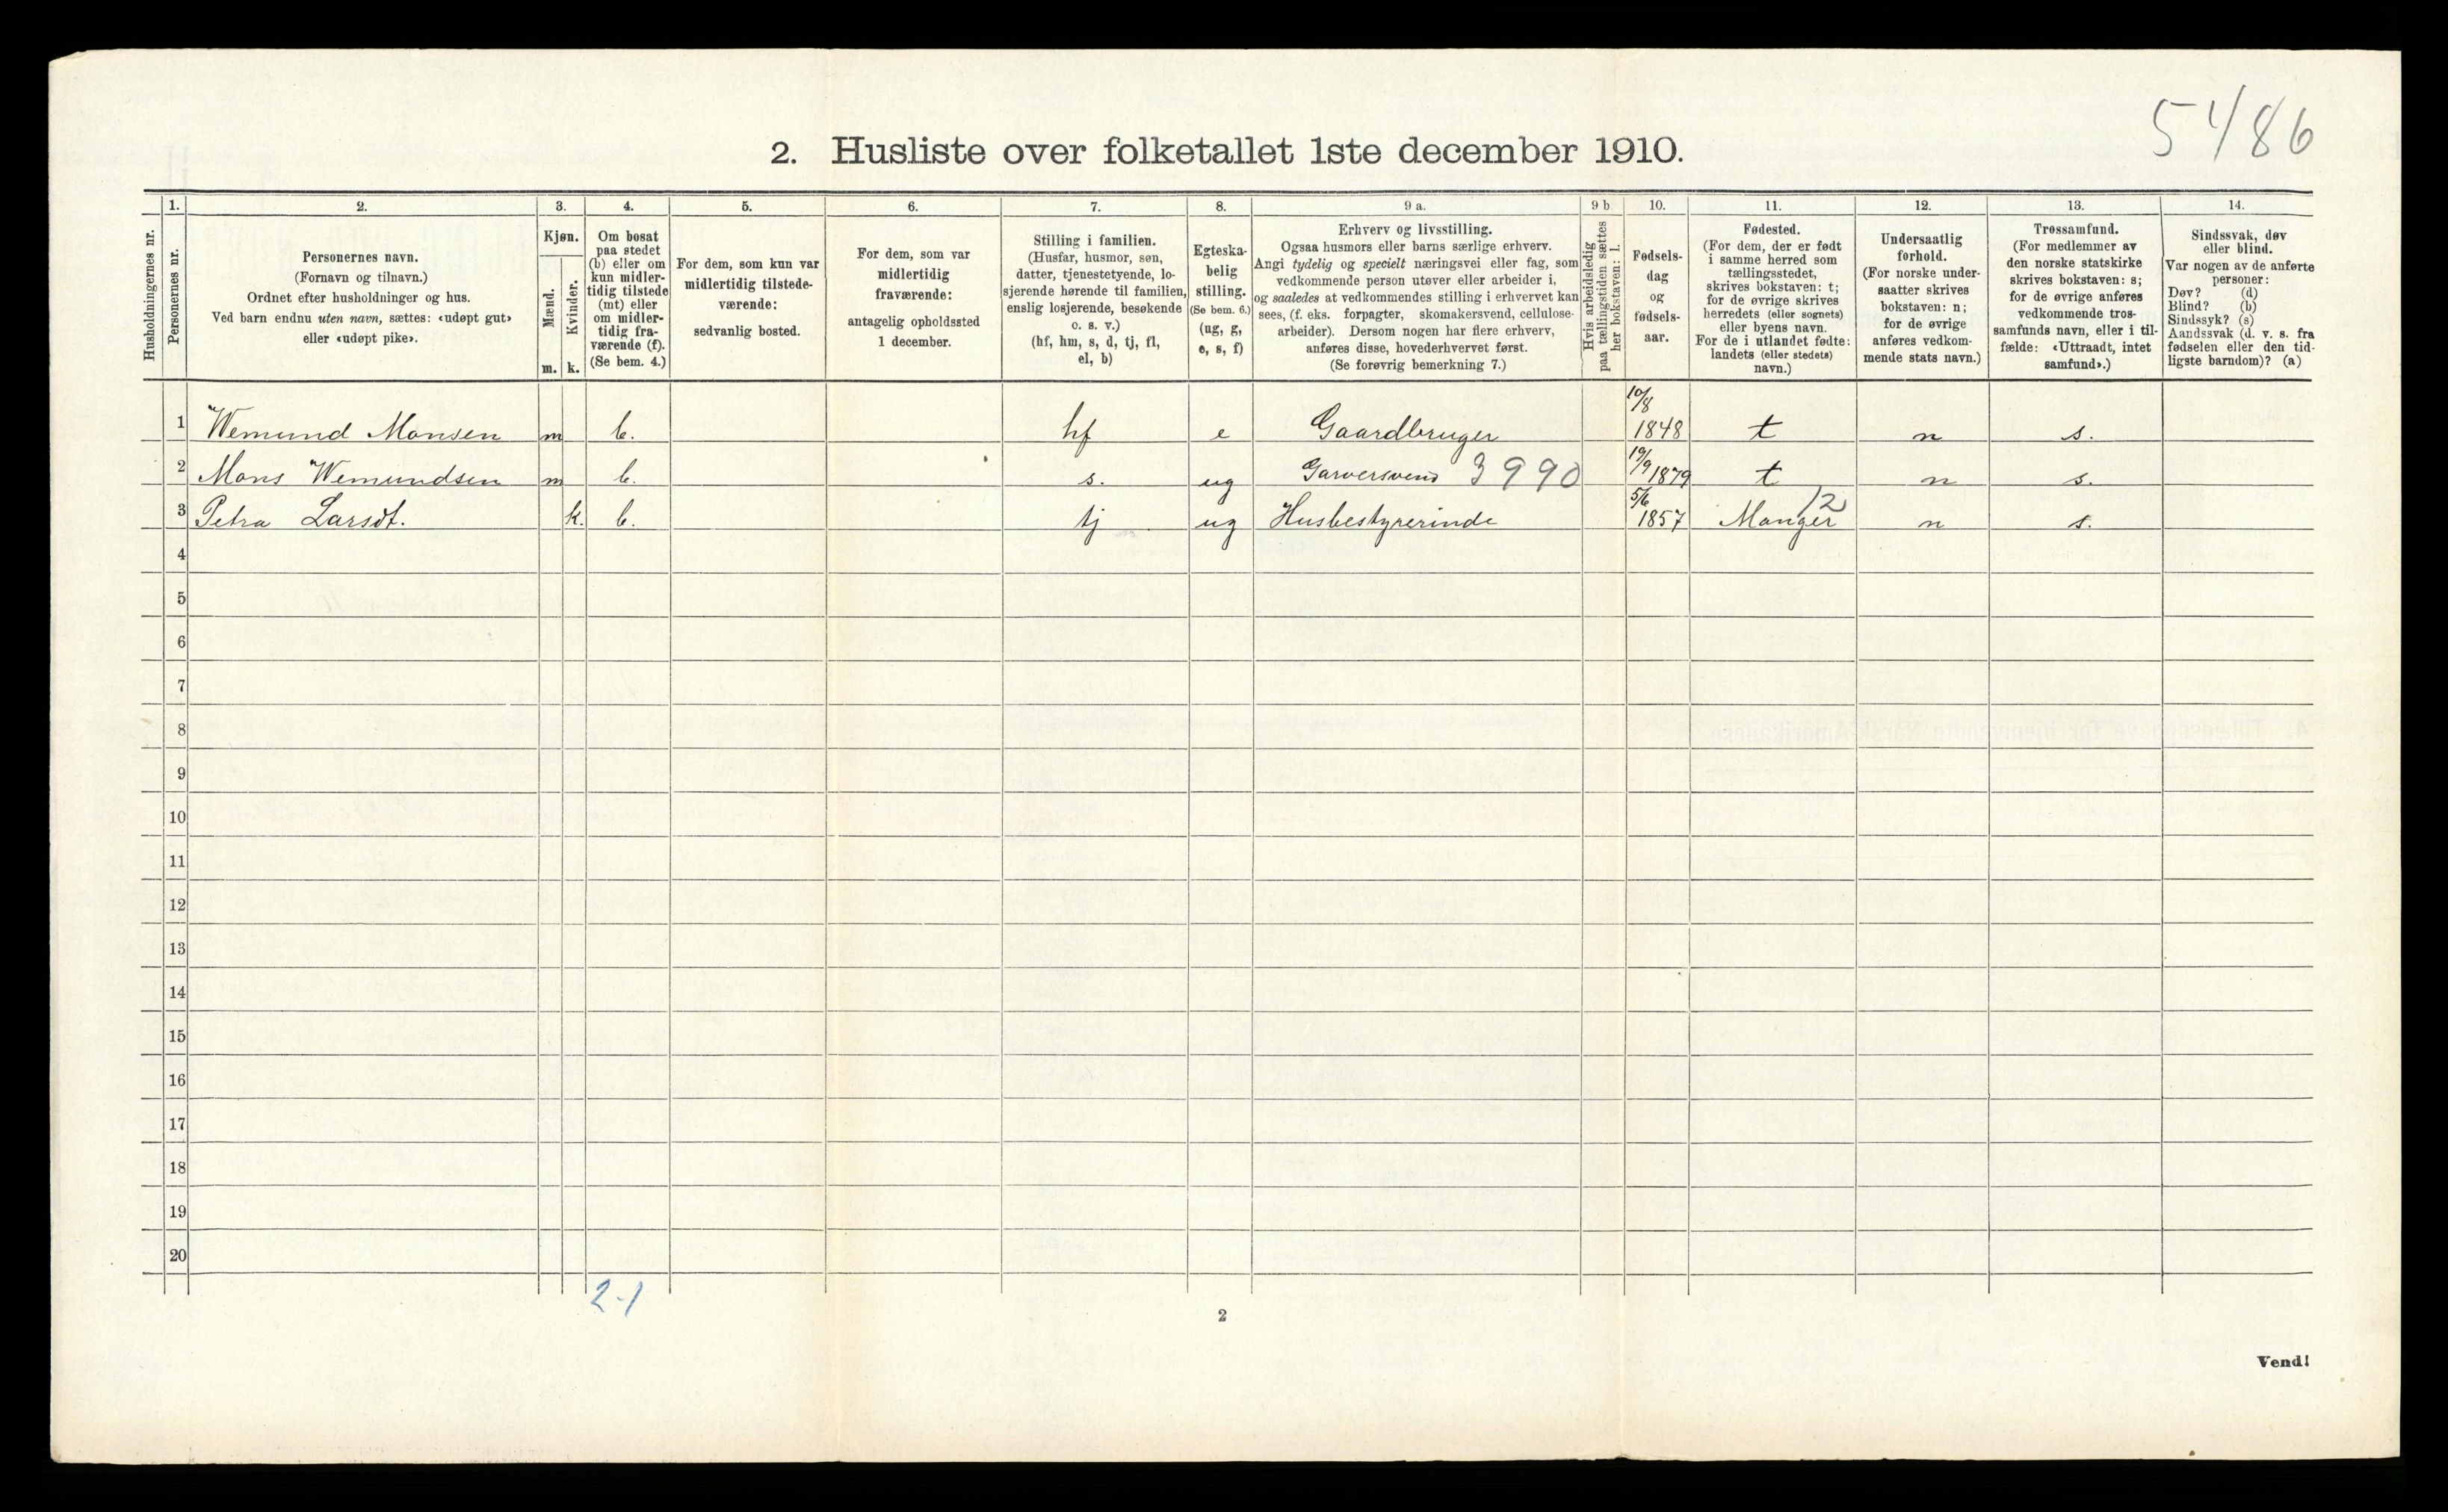 5486
2. Husliste over folketallet 1ste december 1910.
Husholdningernes nr.
1.
Personernes nr.
2.
Personernes navn.
(Fornavn og tilnavn.)
Ordnet efter husholdninger og hus.
Ved barn endnu uten navn, sættes: «udøpt gut»
eller «udøpt pike».
3.
Kjøn.
Mænd.
Kvinder.
m. k.
4.
Om bosat
paa stedet
(b) eller om
kun midler-
tidig tilstede
(mt) eller
om midler-
tidig fra-
værende (f).
(Se bem. 4.)
5.
For dem, som kun var
midlertidig tilstede-
værende:
sedvanlig bosted.
6.
For dem, som var
midlertidig
fraværende:
antagelig opholdssted
1 december.
7.
Stilling i familien.
(Husfar, husmor, søn,
datter, tjenestetyende, lo-
sjerende hørende til familien,
enslig losjerende, besøkende
o. s. v.)
(hf, hm, s, d, tj, fl,
el, b)
8.
Egteska-
belig
stilling.
(Se bem. 6.)
(ug, g,
e, s, f)
9 a.
Erhverv og livsstilling.
Ogsaa husmors eller barns særlige erhverv.
Angi tydelig og specielt næringsvei eller fag, som
vedkommende person utøver eller arbeider i,
og saaledes at vedkommendes stilling i erhvervet kan
sees, (f. eks. forpagter, skomakersvend, cellulose-
arbeider). Dersom nogen har flere erhverv,
anføres disse, hovederhvervet først.
(Se forøvrig bemerkning 7.)
9 b
Hvis arbeidsledig
paa tællingstiden sættes
her bokstaven: l.
10.
Fødsels-
dag
og
fødsels-
aar.
11.
Fødested.
(For dem, der er født
i samme herred som
tællingsstedet,
skrives bokstaven: t;
for de øvrige skrives
herredets (eller sognets)
eller byens navn.
For de i utlandet fødte:
landets (eller stedets)
navn.)
12.
Undersaatlig
forhold.
(For norske under-
saatter skrives
bokstaven: n;
for de øvrige
anføres vedkom-
mende stats navn.)
13.
Trossamfund.
(For medlemmer av
den norske statskirke
skrives bokstaven: s;
for de øvrige anføres
vedkommende tros-
samfunds navn, eller i til-
fælde: «Uttraadt, intet
samfund».)
14.
Sindssvak, døv
eller blind.
Var nogen av de anførte
personer:
Døv? (d)
Blind? (b)
Sindssyk? (s)
Aandssvak (d. v. s. fra
fødselen eller den tid-
ligste barndom)? (a)
1 Wemund Monsen m b. hf e Gaardbruger 10/8 1848 t n s.
2 Mons Wemundsen m b. s. ug Garversvend 3990 19/9 1879 t n s.
3 Petra Larsdt. k. b. tj ug Husbestyrerinde 5/6 1857 Manger 12 n s.
4
5
6
7
8
9
10
11
12
13
14
15
16
17
18
19
20
2-1
2
Vend!